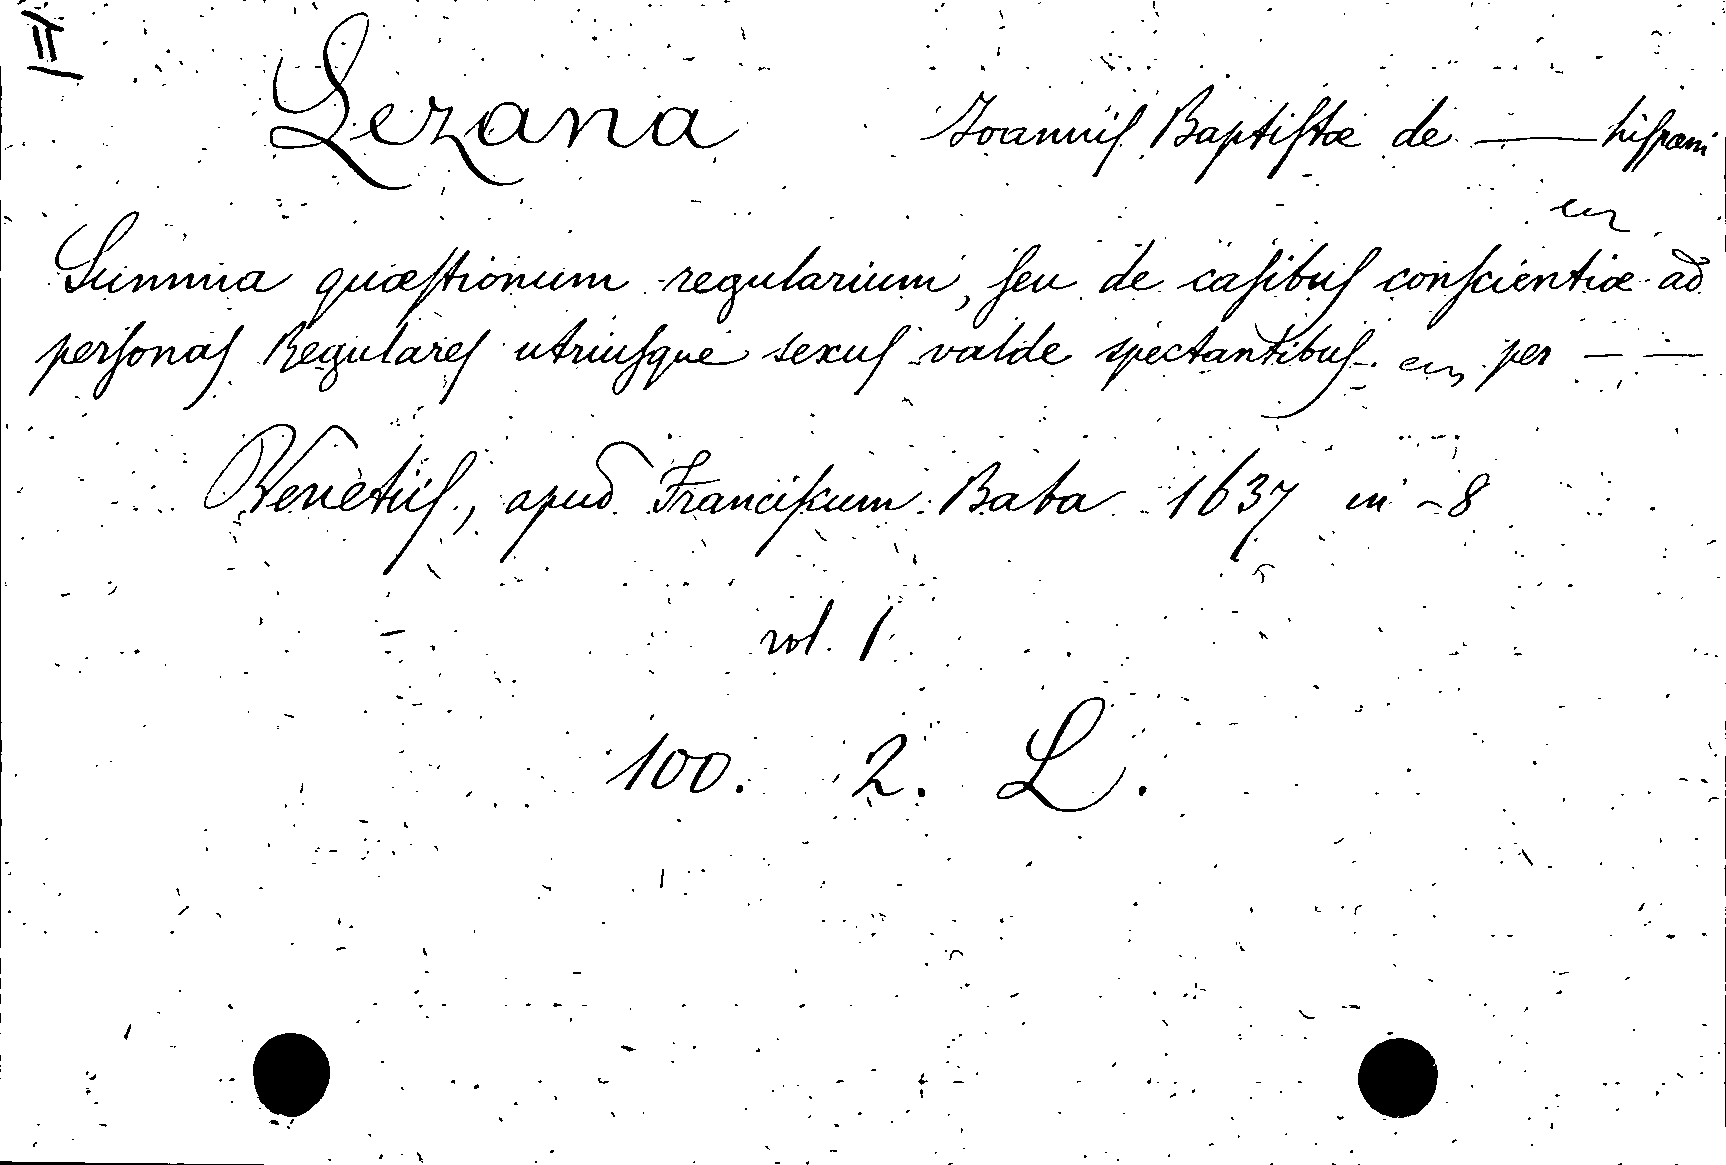 II
Lezana Joannis Baptistæ de — hispani
Summa quæstionum regularium, seu de casibus conscientiæ ad
personas Regulares utriusque sexus valde spectantibus. per — —
Venetiis, apud Franciscum Baba 1637 in-8
vol. 1
100. 2. L.